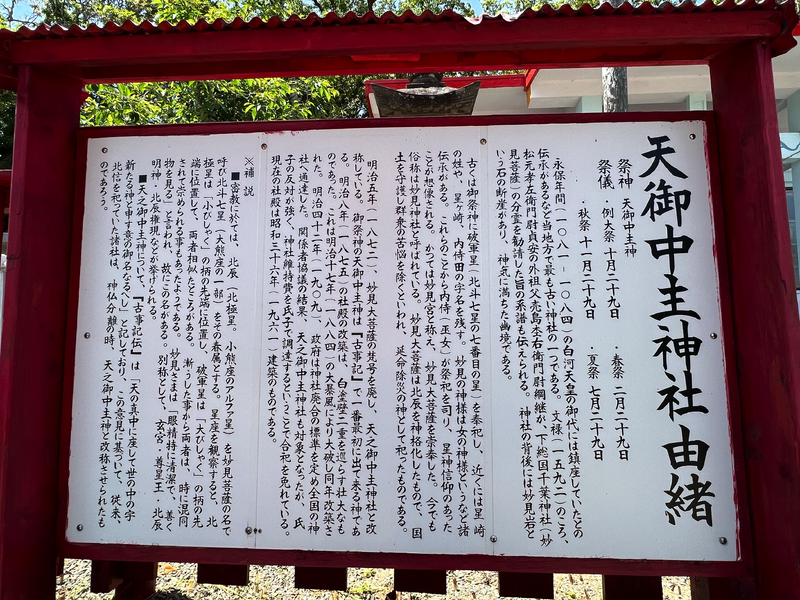 天御中主神社由緒
祭神　天御中主神
祭儀　・例大祭　十月二十九日　・春祭　二月二十九日
・秋祭　十一月二十九日　・夏祭　七月二十九日
永保年間（一〇八一―一〇八四）の白河天皇の御代には鎮座していたとの
伝承があるなど当地方で最も古い神社の一つである。文禄（一五九二）のころ、
松元孝左衛門尉貞安の外祖父兎島杢右衛門尉綱継が、下総国千葉神社（妙
見菩薩）の分霊を勧請した旨の系譜も伝えられる。神社の背後には妙見岩と
いう石の断崖があり、神気に満ちた幽境である。
古くは御祭神に破軍星（北斗七星の七番目の星）を奉祀し、近くには星崎
の姓や、星ヶ﨑、内侍田の字名を残す。妙見の神様は女の神様というなど諸
伝承がある。これらのことから内侍（巫女）が祭祀を司り、星神信仰のあった
ことが想像される。かつては妙見宮と称え、妙見大菩薩を崇奉した。今でも
俗称は妙見神社と呼ばれている。妙見大菩薩は北辰を神格化したもので、国
土を守護し群衆の苦悩を除くといわれ、延命除災の神として祀ったものである。
明治五年（一八七二）、妙見大菩薩の梵号を廃し、天之御中主神社と改
称している。御祭神の天之御中主神は『古事記』で一番最初に出て来る神であ
る。明治八年（一八七五）の社殿の改築は、白塗壁二重を巡らす壮大なも
のであった。これは明治十七年（一八八四）の大暴風により大破し同年改築さ
れた。明治四十二年（一九〇九）、政府は神社廃合の標準を定め全国の神
社へ通達した。関係者協議の結果、天之御中主神社も対象となったが、氏
子の反対が強く、神社維持費を氏子で調達するということで合祀を免れている。
現在の社殿は昭和三十六年（一九六一）建築のものである。
※補　説
■密教に於ては、北辰（北極星。小熊座のアルファ星）を妙見菩薩の名で
呼び北斗七星（大熊座の一部）をその眷属とする。星座を観察すると、北
極星は「小びしゃく」の柄の先端に位置し、破軍星は「大びしゃく」の柄の先
端に位置して、両者相似たところがある。漸うした事から両者は、時に混同
されて崇められる事もあったようである。妙見さまは「眼精特に清潔で、善く
物を見る」と言われ、故にこの名がある。別称として、玄宮・尊星王・北辰
明神・北辰権現などが挙げられる。
■天之御中主神について、『古事記伝』は「天の真中に座して世の中の宇
新たる神と申す意の御名なるべし」と記しており、この意見に基づいて、従来、
北信を祀っていた諸社は、神仏分離の時、天之御中主神と改称させられたも
のであろう。